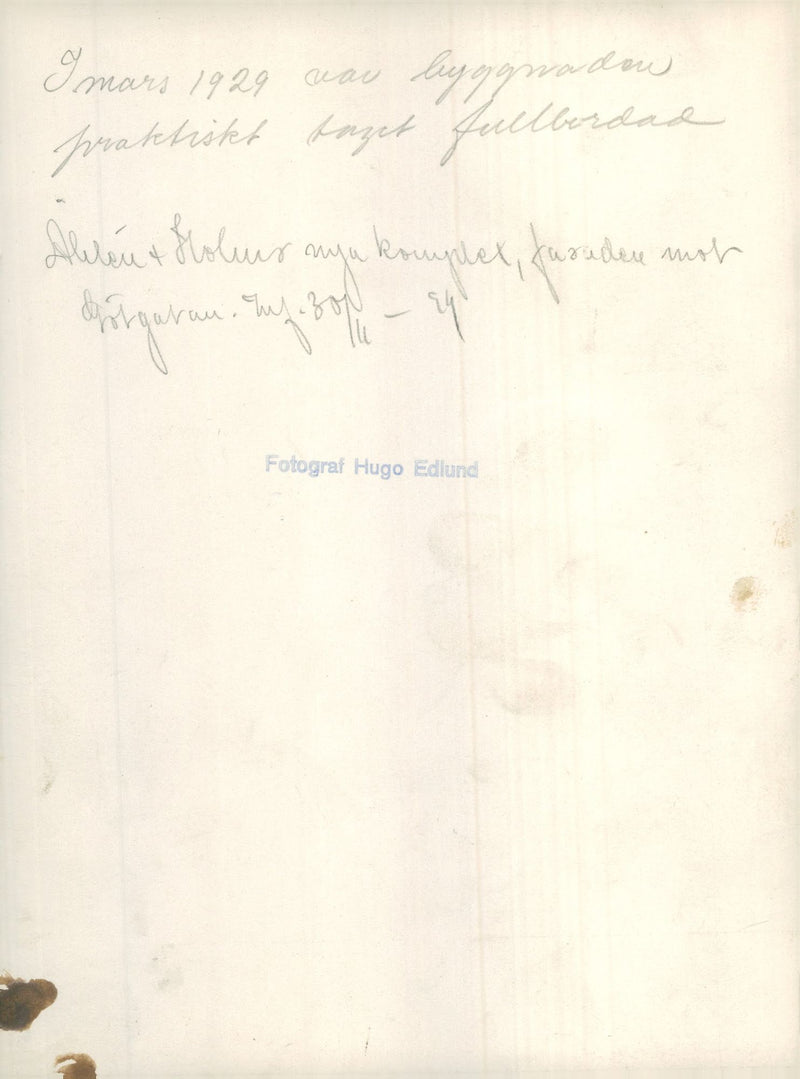 I mars 1929 var byggnaden
praktiskt taget fullbordad
Åhlén + Holms nya komplex, fasaden mot
Götgatan. Inf. 30/11 –
Fotograf Hugo Edlund